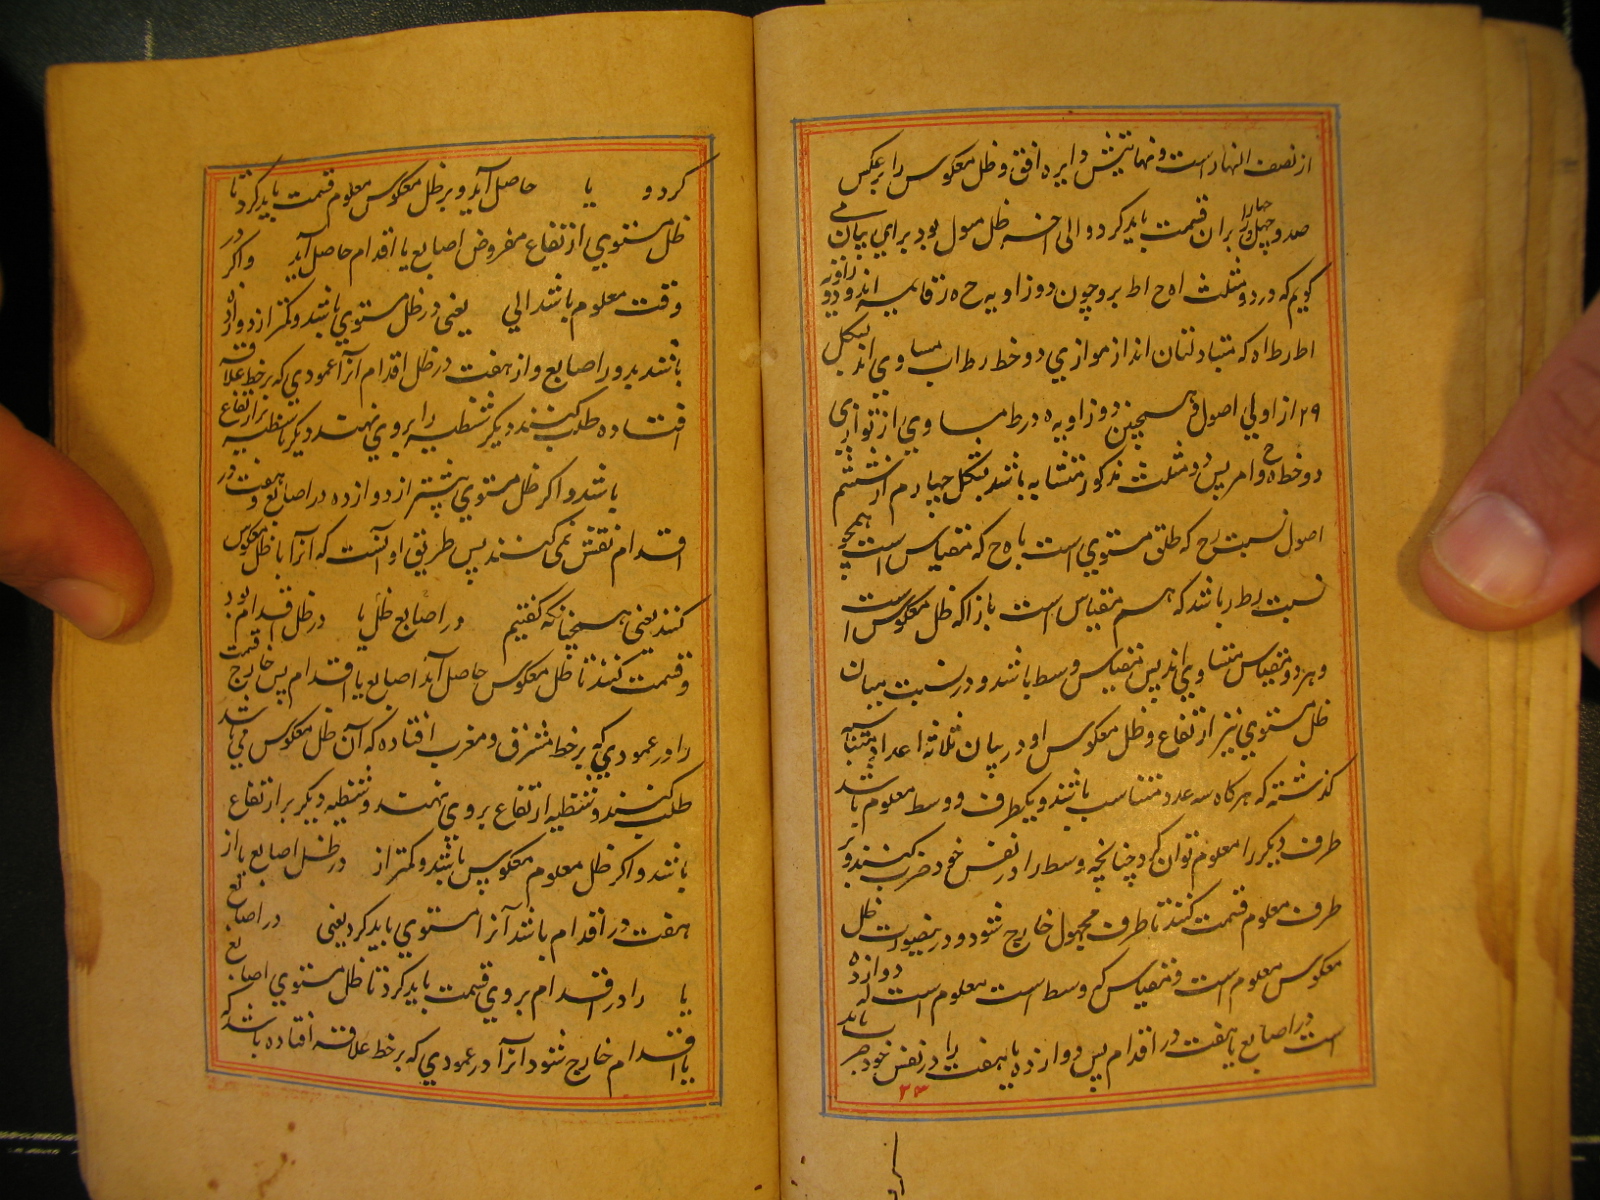 از نصف النهار است و نهایتش دایره افق و ظل معکوس را بر عکس
صد و چهل و چهار را بران قسمت باید کرد و الی اخره ظل مول بود برای بیان می
کویم که در دو مثلث اه ح اط بر و چون دو زاویه ح ه ز قایمه اند و دو زاویه
اط رط اه که متبادلتان اند از موازي دو خط رط اب مساوي اند بشکل
۲۹ از اولي اصول همچنین دو زاویه ه درط مساوي از توازي
دو خط ه ح و امر پس دو مثلث مذکور متشابه باشد بشکل چهارم از ششم
اصول نسبت رح که ظل مستوي است با ه ح که مقیاس است همچو
نسبت رط ر باشد که هم مقیاس است باز اکه ظل معکوس است
و هر دو مقیاس متساوي اند پس مقیاس وسط باشد و در نسبت میان
ظل مستوي نیز ارتفاع و ظل معکوس او در بیان ثلاثه اعداد متناسبه
کذشته که هر کاه سه عدد متناسب باشند و یکطرف و وسط معلوم باشد
طرف دیکر را معلوم توان کرد چنانچه وسط را در نفس خود ضرب کنند و بر
طرف معلوم قسمت کنند تا طرف مجهول خارج شود و درینصورت ظل
معکوس معلوم است و مقیاس که وسط است معلوم است که دوازده
است در اصابع یا هفت در اقدام پس دوازده یا هفت را در نفس خود ضرب باید
۲۳
کرد و یا حاصل آید و بر ظل معکوس معلوم قسمت باید کرد تا
ظل مستوي از تفاع مفروض اصابع یا اقدام حاصل آید و اکر در
وقت معلوم باشد الي یعنی در ظل مستوي باشد و کمتر از دوازده
باشند بدور اصابع و از هفت در ظل اقدام آنرا عمودي که بر خط علاقه
افتاده طلب کنند دیکر شظیه را بروي نهند دیکر باشظیه بر ارتفاع
باشد و اکر ظل مستوي بیشتر از دوازده در اصابع و هفت در
اقدام نقش نمی کنند پس طریق او آنست که آنرا با ظل معکوس
کنند یعنی همچنانکه کفتیم در اصابع ظل یا در ظل اقدام بود
و قسمت کنند تا ظل معکوس حاصل آید اصابع یا اقدام پس خارج قسمت
را در عمودي که بر خط مشرق و مغرب افتاده که آن ظل معکوس می باشد
طلب کنند و شظیه ارتفاع بروي نهند و شظیه دیکر بر ارتفاع
باشد و اکر ظل معلوم معکوس باشد و کمتر از در ظل اصابع یا از
هفت در اقدام باشد آنرا مستوي باید کرد یعنی در اصابع
یا را در اقدام بروي قسمت باید کرد تا ظل مستوي اصابع
یا اقدام خارج شود آنرا در عمودي که بر خط علاقه افتاده باشد که